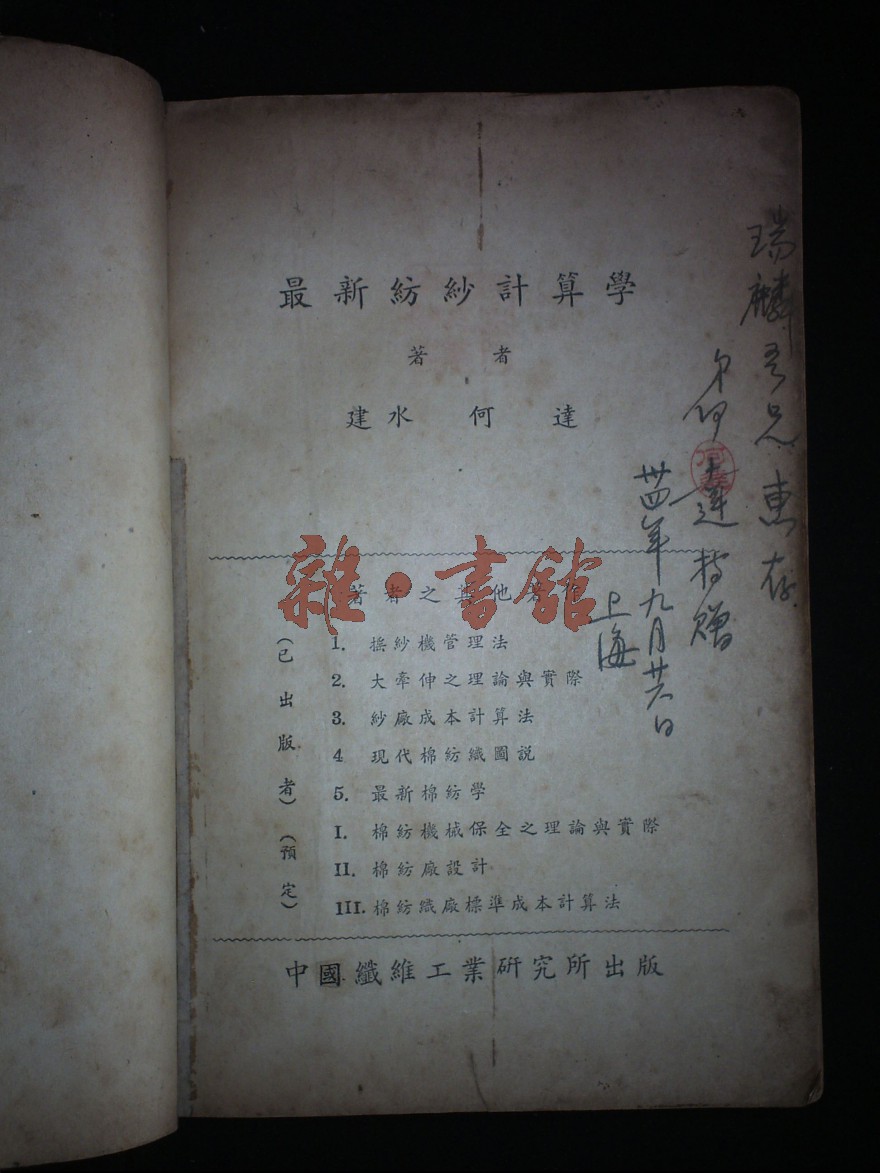 最新紡紗計算學
著者
建水 何達
著者之其他著作
(已出版者)
1. 搖紗機管理法
2. 大牽伸之理論與實際
3. 紗廠成本計算法
4 現代棉紡織圖説
5. 最新棉紡學
(預定)
I. 棉紡機械保全之理論與實際
II. 棉紡廠設計
III. 棉紡織廠標準成本計算法
中國纖維工業研究所出版
瑞麟吾兄惠存
弟何達持贈
卅四年九月廿六日
上海
雜·書館